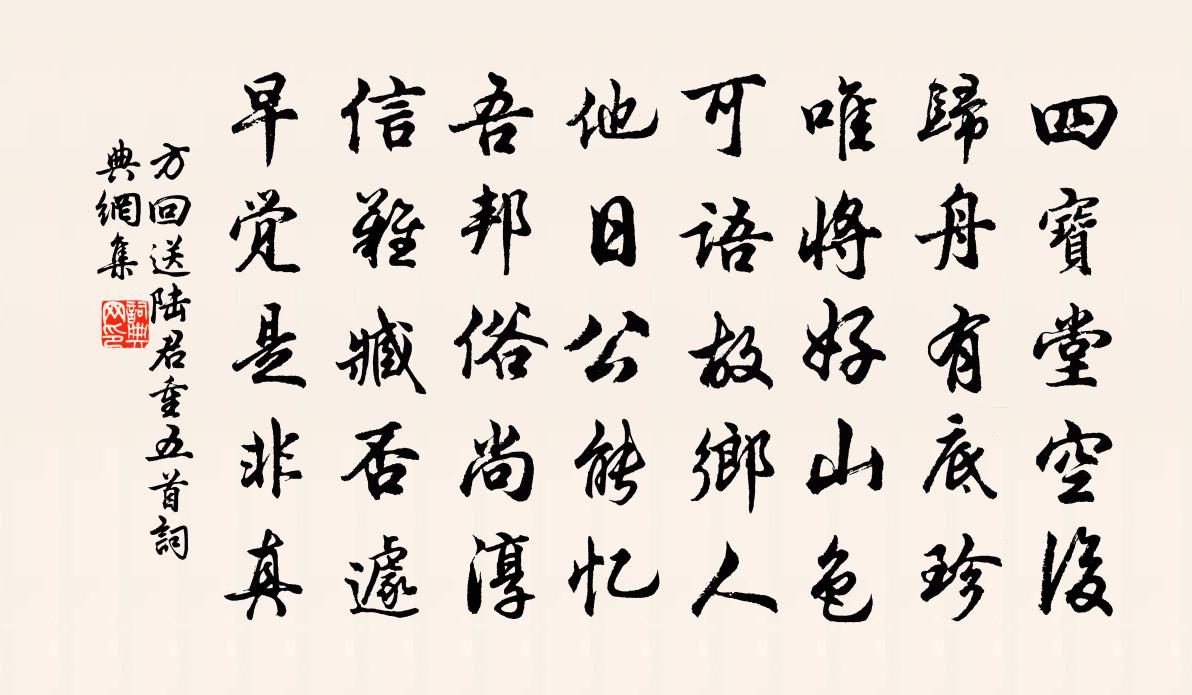 四寶堂空後
歸舟有底珍
唯將好山色
可語故鄉人
他日公能忆
吾邦俗尚淳
信難臧否遽
早觉是非真
方回送陆君重五首詞
典網集
詞典网印